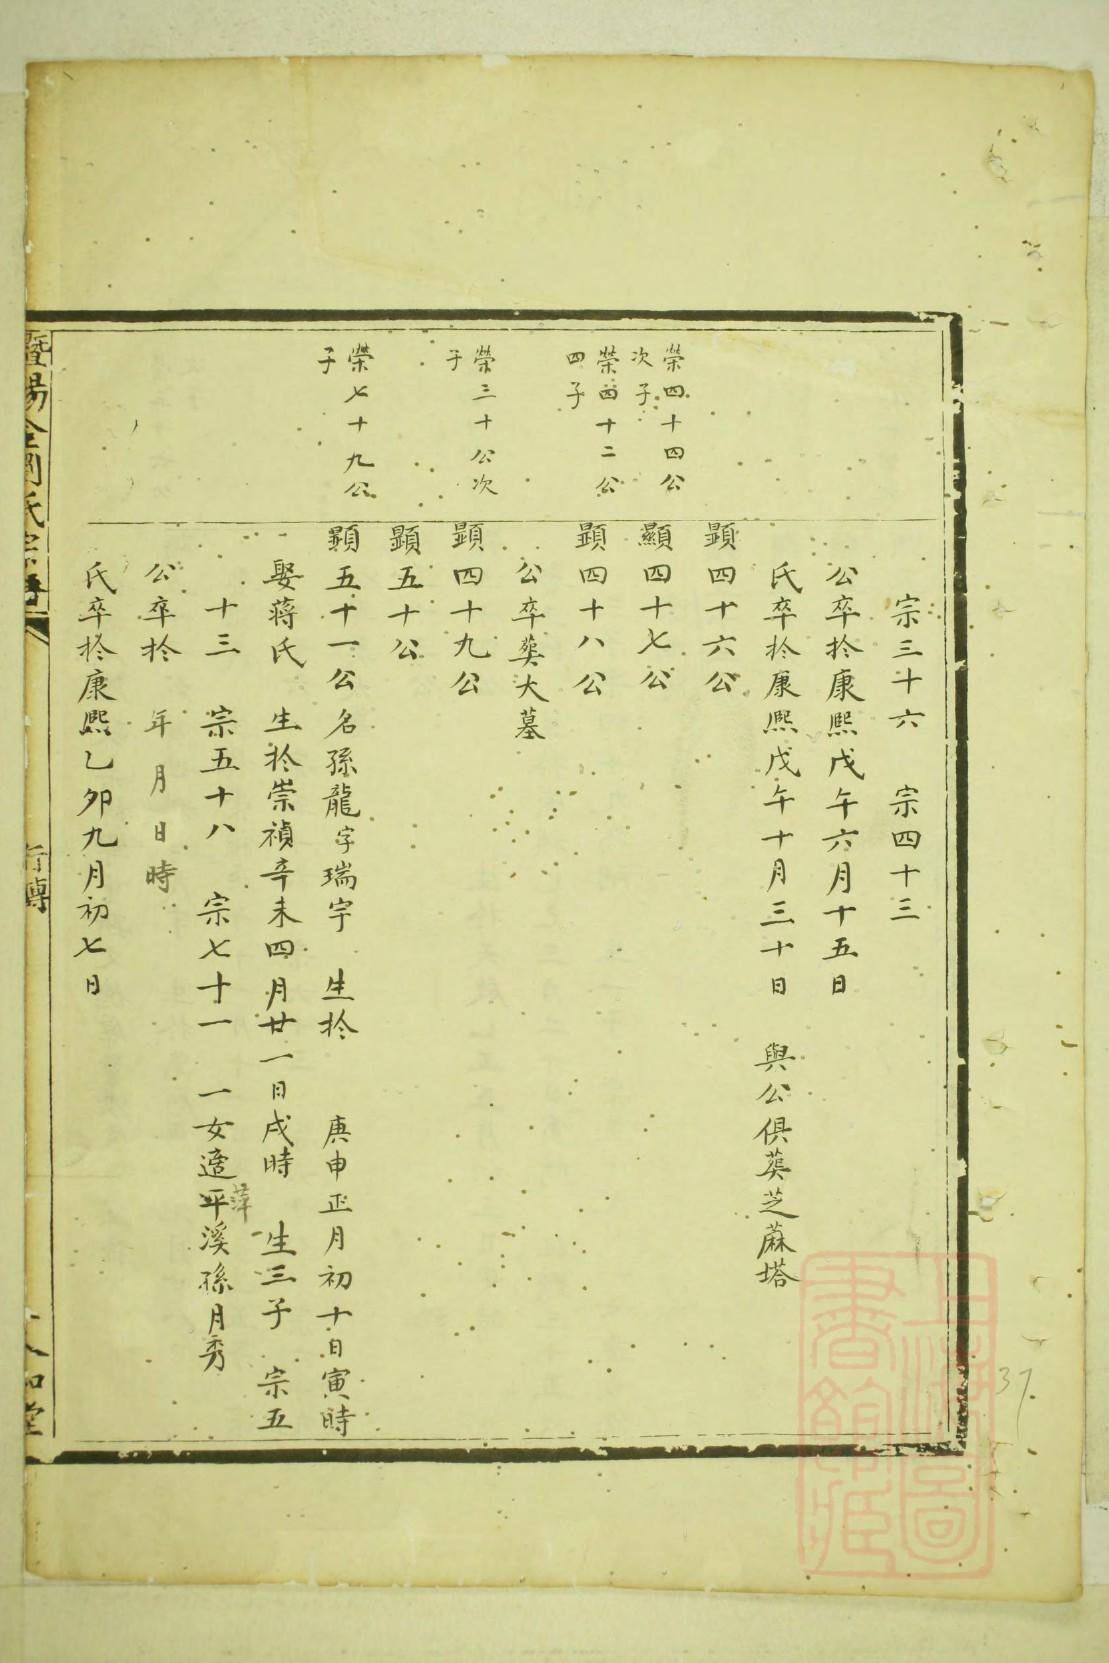 宗三十六 宗四十三
公卒於康熙戊午六月十五日
氏卒於康熙戊午十月三十日 與公俱葬芝蔴塔
顯四十六公
榮四十四公
次子
顯四十七公
榮四十二公
四子
顯四十八公
公卒葬大墓
榮三十公次
子
顯四十九公
顯五十公
榮七十九公
子
顯五十一公名孫龍字瑞宇 生於 庚申正月初十日寅時
娶蒋氏 生於崇禎辛未四月廿一日戌時 生三子 宗五
十三 宗五十八 宗七十一 一女適平溪孫月秀
萍
公卒於 年月日時
氏卒於康熙乙卯九月初七日
暨陽 氏宗譜
行傳
堂
上海圖
書館藏
37